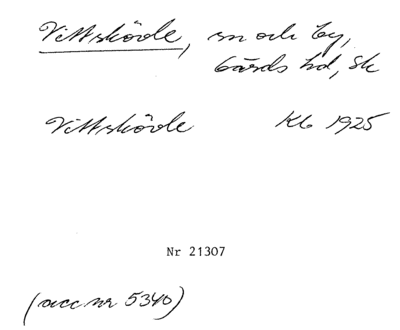 Vittskövle, sn och by,
Gärds hd, Sk
Vittskövle Kb 1925
Nr 21307
(acc nr 5340)